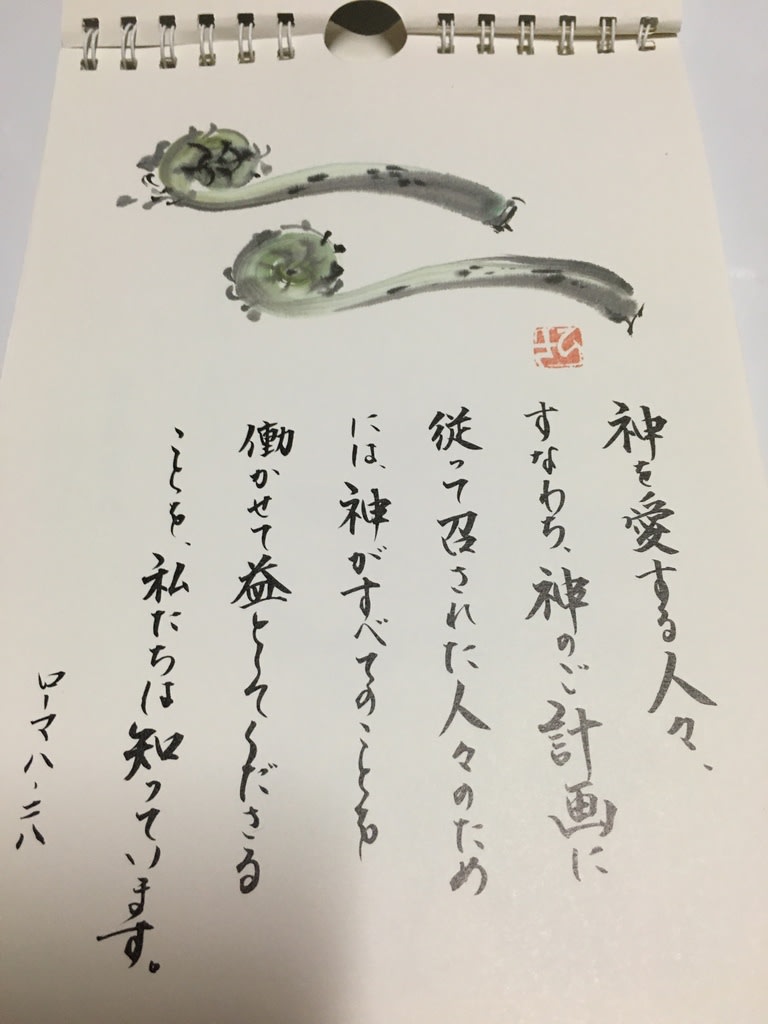 神を愛する人々、
すなわち、神のご計画に
従って召された人々のため
には、神がすべてのことを
働かせて益としてくださる
ことを、私たちは知っています。
ローマ八・二八